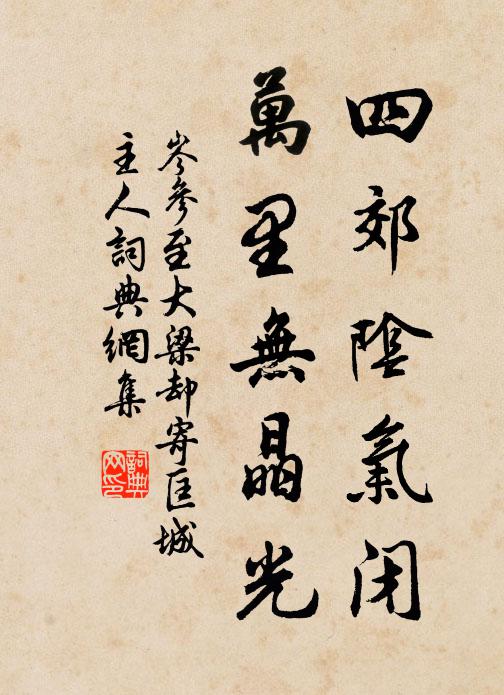 四郊陰氣闭
萬里無晶光
岑參至大梁却寄匡城
主人詞典網集
詞典网印